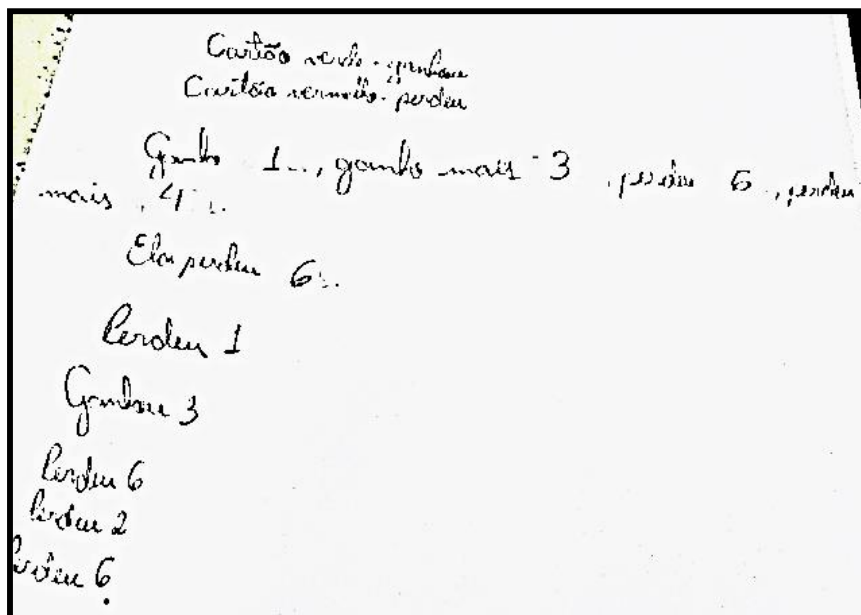 Cartão verde - ganhou
Cartão vermelho - perdeu
Ganho 1.., ganho mais 3 , perdeu 6 , perdeu
mais 4 ..
Ela perdeu 6..
Perdeu 1
Ganhou 3
Perdeu 6
Perdeu 2
Perdeu 6.